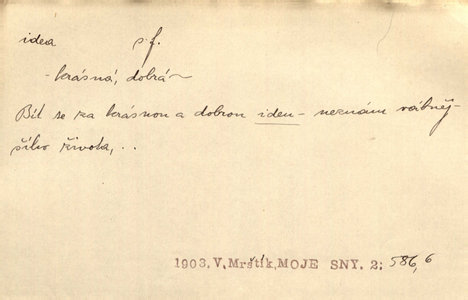 idea s. f.
- krásná, dobrá ~
Bít se za krásnou a dobrou ideu - neznám vábněj-
šího života, ..
1903. V. Mrštík, MOJE SNY. 2; 586, 6